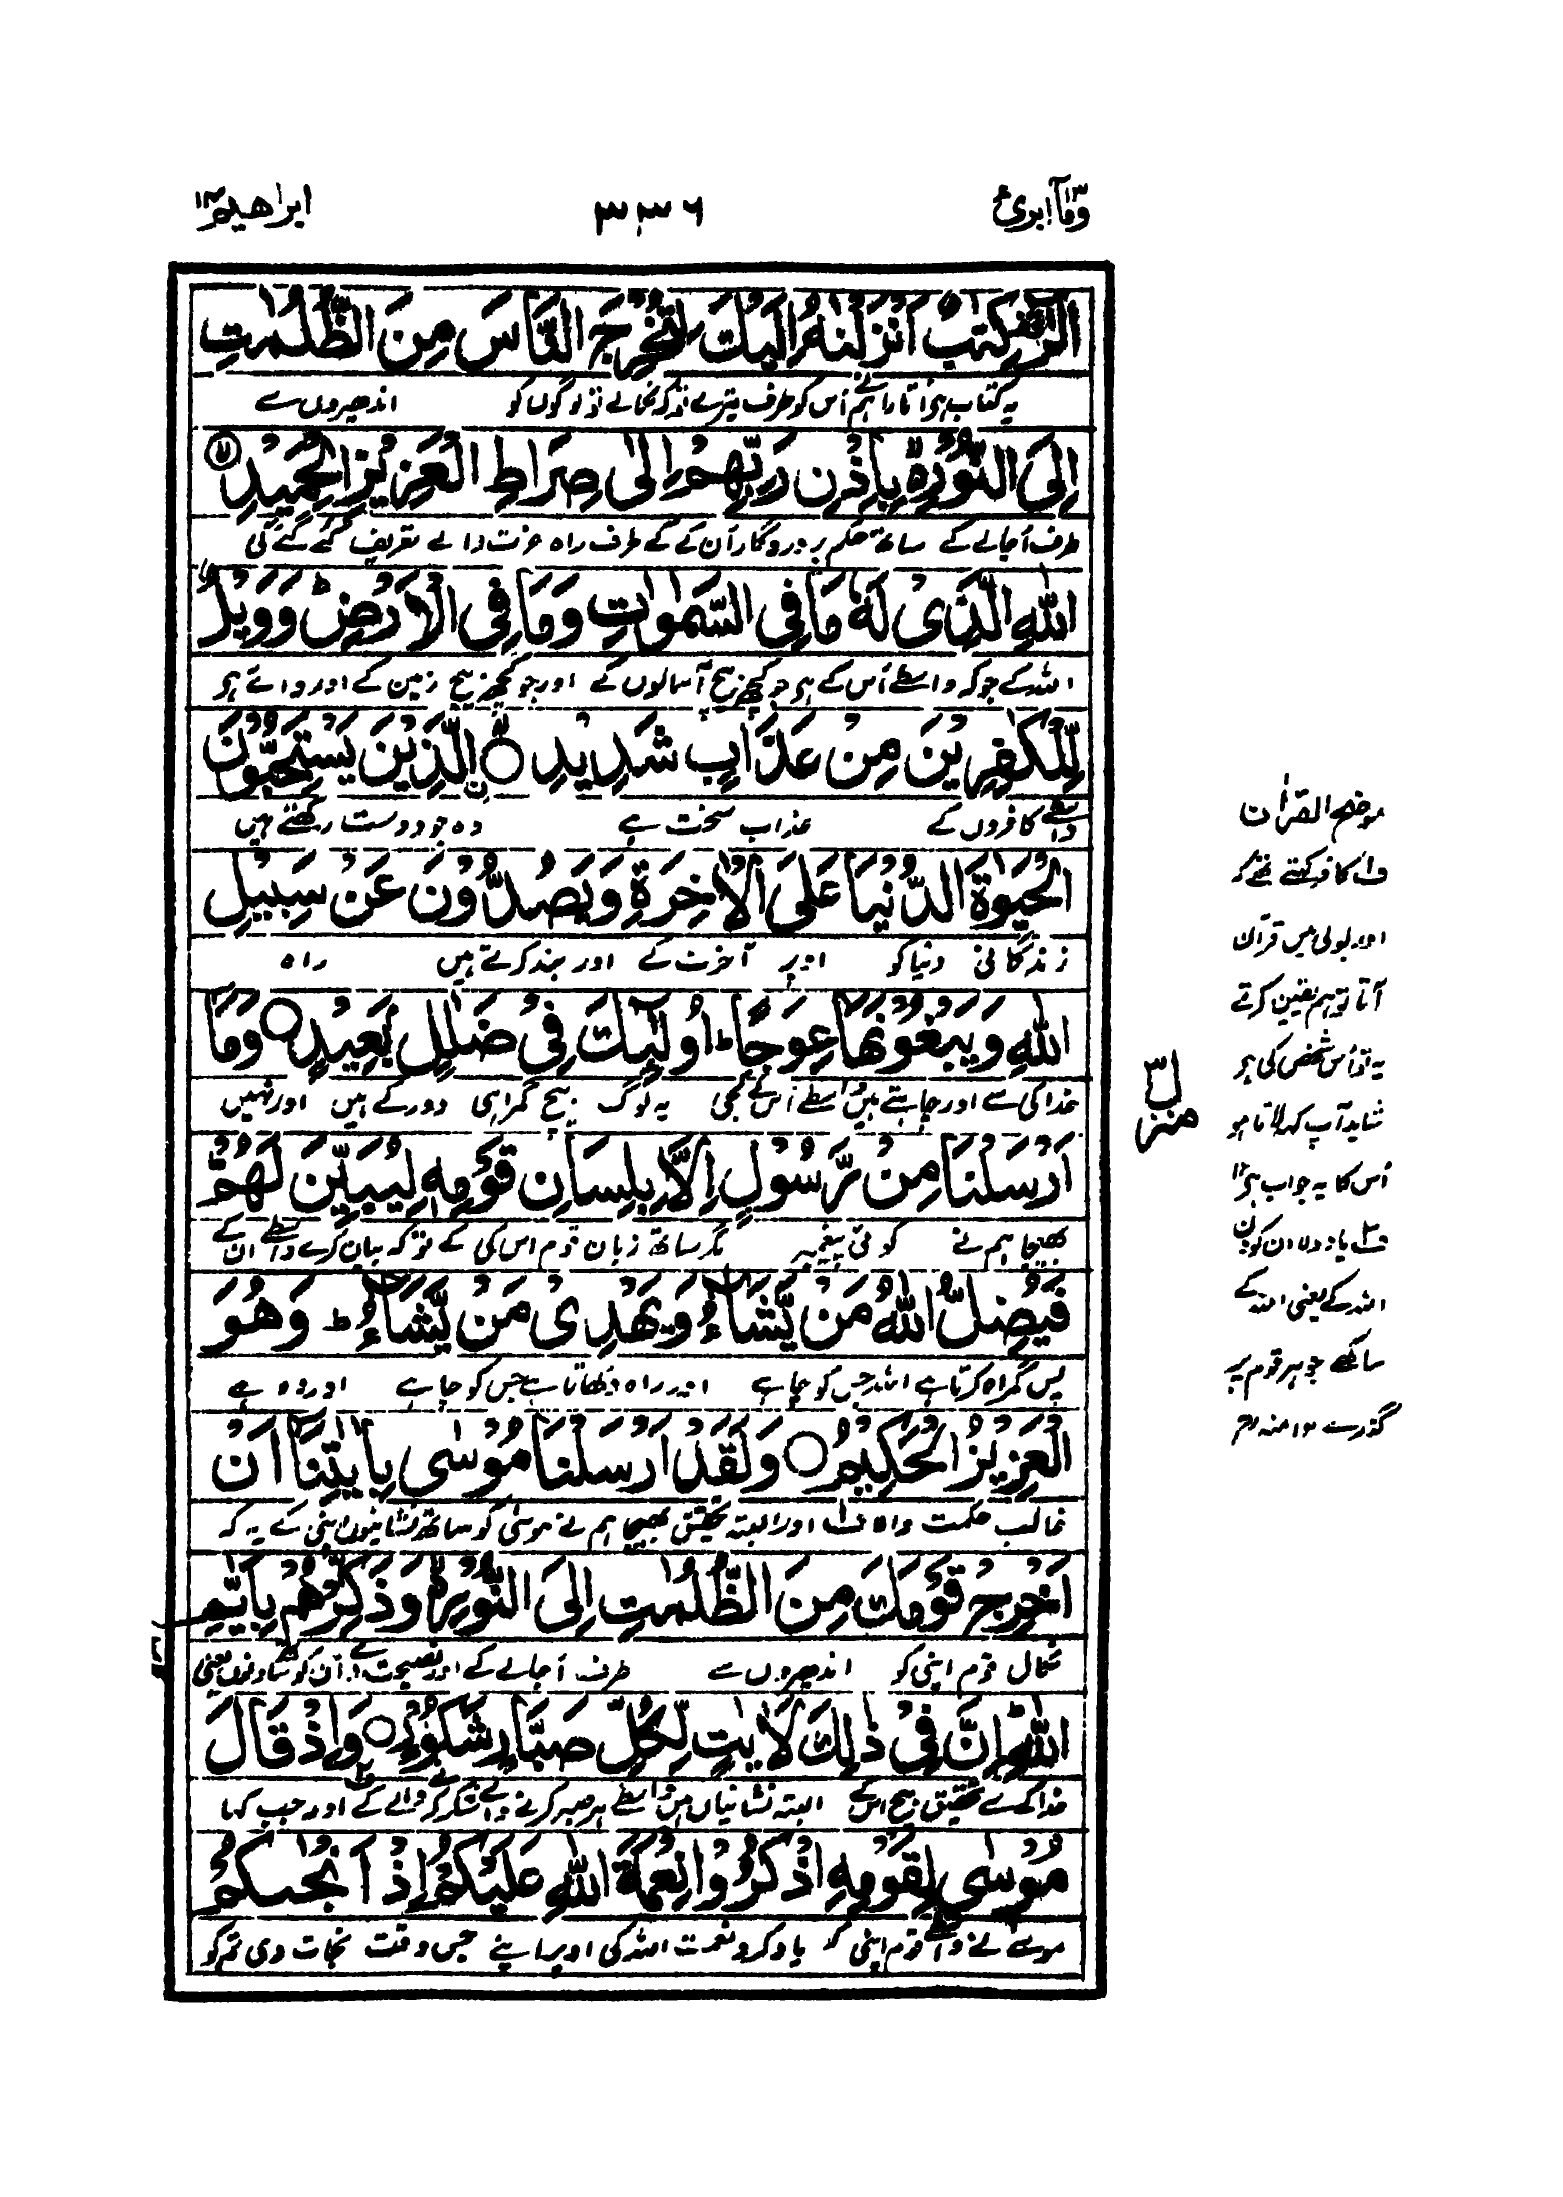 وَمَآ اُبرئ ۱۳
۳۳۶
ابراهيم ۱۴
الٓرٰ كِتٰبٌ اَنْزَلْنٰهُ اِلَيْكَ لِتُخْرِجَ النَّاسَ مِنَ الظُّلُمٰتِ
یہ کتاب ہے اتارا ہم نے اُس کو طرف تیرے توکہ نکالے تو لوگوں کو اندھیروں سے
اِلَى النُّوْرِ بِاِذْنِ رَبِّهِمْ اِلٰى صِرَاطِ الْعَزِيْزِ الْحَمِيْدِ
طرف اُجالے کے ساتھ حکم پروردگار اُن کے کے طرف راہ عزت والے تعریف کئے گئے کی
اللّٰهِ الَّذِىْ لَهٗ مَا فِى السَّمٰوٰتِ وَمَا فِى الْاَرْضِ ؕ وَوَيْلٌ
اللہ کے جو کہ واسطے اُس کے ہے جو کچھ بیچ آسمانوں کے اور جو کچھ بیچ زمین کے اور وائے ہے
لِّلْكٰفِرِيْنَ مِنْ عَذَابٍ شَدِيْدِ ۙ الَّذِيْنَ يَسْتَحِبُّوْنَ
واسطے کافروں کے عذاب سخت سے وہ جو دوست رکھتے ہیں
الْحَيٰوةَ الدُّنْيَا عَلَى الْاٰخِرَةِ وَيَصُدُّوْنَ عَنْ سَبِيْلِ
زندگانی دنیا کو اوپر آخرت کے اور بند کرتے ہیں راہ
اللّٰهِ وَيَبْغُوْنَهَا عِوَجًا ؕ اُولٰٓئِكَ فِىْ ضَلٰلٍ بَعِيْدٍ ○ وَمَآ
خدا کی سے اور چاہتے ہیں واسطے اُس کے کجی یہ لوگ بیچ گمراہی دور کے ہیں اور نہیں
اَرْسَلْنَا مِنْ رَّسُوْلٍ اِلَّا بِلِسَانِ قَوْمِهٖ لِيُبَيِّنَ لَهُمْ ؕ
بھیجا ہم نے کوئی پیغمبر مگر ساتھ زبان قوم اس کی کے توکہ بیان کرے واسطے ان کے
فَيُضِلُّ اللّٰهُ مَنْ يَّشَآءُ وَيَهْدِىْ مَنْ يَّشَآءُ ؕ وَهُوَ
پس گمراہ کرتا ہے اللہ جس کو چاہے اور راہ دکھاتا ہے جس کو چاہے اور وہ ہے
الْعَزِيْزُ الْحَكِيْمُ ○ وَلَقَدْ اَرْسَلْنَا مُوْسٰى بِاٰيٰتِنَآ اَنْ
غالب حکمت والا ف۱ اور البتہ تحقیق بھیجا ہم نے موسیٰ کو ساتھ نشانیوں اپنی کے یہ کہ
اَخْرِجْ قَوْمَكَ مِنَ الظُّلُمٰتِ اِلَى النُّوْرِ ۙ وَذَكِّرْهُمْ بِاَيّٰىمِ
نکال قوم اپنی کو اندھیروں سے طرف اُجالے کے اور نصیحت دے اُن کو ساتھ دنوں یعنی
اللّٰهِ ؕ اِنَّ فِىْ ذٰلِكَ لَاٰيٰتٍ لِّكُلِّ صَبَّارٍ شَكُوْرٍ ○ وَاِذْ قَالَ
خدا کے سے تحقیق بیچ اس کے البتہ نشانیاں ہیں واسطے ہر صبر کرنے والے شکر کرنے والے کے ف۲ اور جب کہا
مُوْسٰى لِقَوْمِهِ اذْكُرُوْا نِعْمَةَ اللّٰهِ عَلَيْكُمْ اِذْ اَنْجٰىكُمْ
موسے نے واسطے قوم اپنی کے یاد کرو نعمت اللہ کی اوپر اپنے جس وقت نجات دی تم کو
منزل ۳
موضح القرآن
ف۱ کافر کہتے تھے کہ
اور بولی میں قرآن
آتا تو ہم یقین کرتے
یہ تو اُس شخص کی ہے
شاید آپ کہہ لاتا ہو
اُس کا یہ جواب ہے ۱۲
ف۲ یاد دلا ان کو دن
اللہ کے یعنی اللہ کے
ساکھے جو ہر قوم پر
گذرے ۱۲ منہ رح